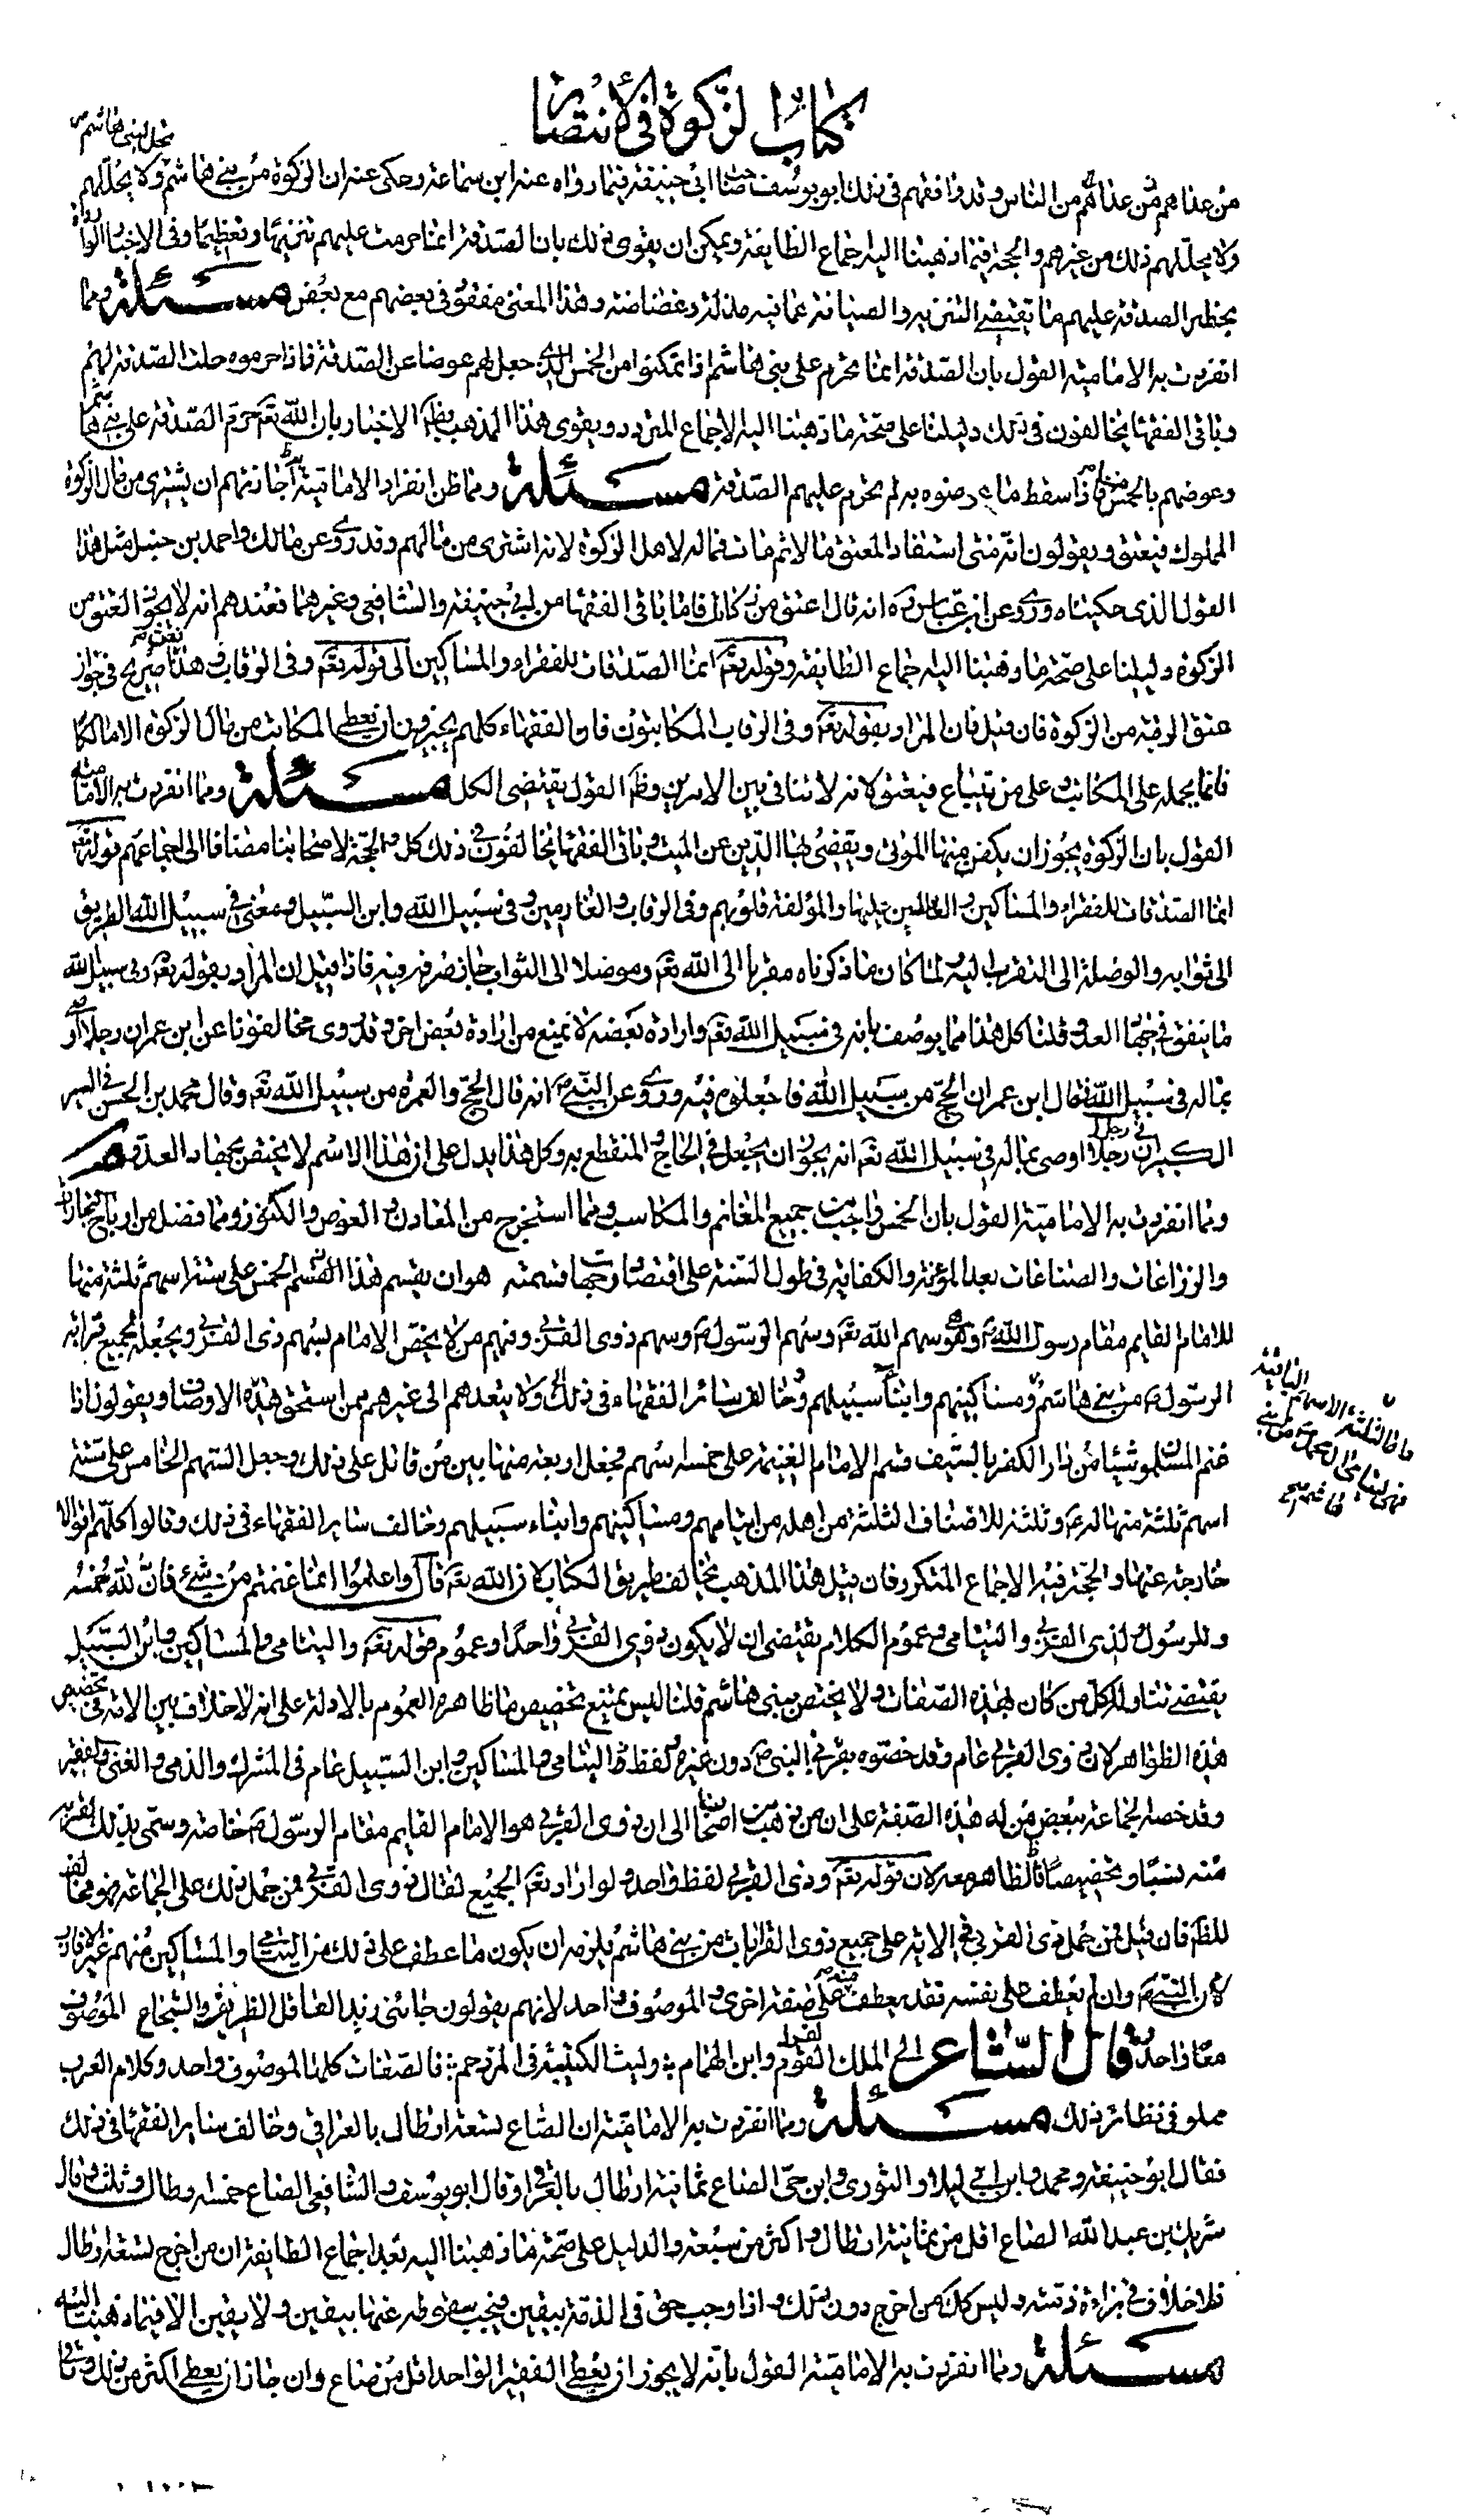 كتاب الزكوة في الانتصار
تحل لبني هاشم
من عداهم ممن عداهم من الناس وقد وافقهم في ذلك ابو يوسف صاحب ابي حنيفة فيما رواه عنه ابن سماعة وحكى عنه ان الزكوة من بني هاشم ولا يحل لهم
ولا يحل لهم ذلك من غيرهم والحجة فيما ذهبنا اليه اجماع الطايفة ويمكن ان يقوى ذلك بان الصدقة انما حرمت عليهم تنزيها وتعظيما وفي الاخبار الواردة
بحظر الصدقة عليهم ما يقتضي التنزيه والصيانة عما فيه مذلة وغضاضة وهذا المعنى مفقود في بعضهم مع بعض مسئلة ومما
انفردت به الامامية القول بان الصدقة انما تحرم على بني هاشم اذا تمكنوا من الخمس الذي جعل لهم عوضا عن الصدقة فاذا حرموه حلت الصدقة لهم
وباقي الفقهاء يخالفون في ذلك دليلنا على صحة ما ذهبنا اليه الاجماع المتردد ويقوى هذا المذهب بظ الاخبار بان الله تع حرم الصدقة على بني هاشم
وعوضهم بالخمس منها فاذا سقط ما عوضوه به لم تحرم عليهم الصدقة مسئلة ومما ظن انفراد الامامية به اجازتهم ان يشترى من مال الزكوة
المملوك فيعتق ويقولون انه متى استفاد المعتق مالا ثم مات فماله لاهل الزكوة لانه اشترى من مالهم وقد روى عن مالك واحمد بن حنبل مثل هذا
القول الذي حكيناه وروى عن ابن عباس ره انه قال اعتق من زكاتك فاما باقي الفقهاء من ابي حنيفة والشافعي وغيرهما فعندهم انه لا يجوز العتق من
الزكوة دليلنا على صحة ما ذهبنا اليه اجماع الطايفة وقوله تع انما الصدقات للفقراء والمساكين الى قوله تع وفي الرقاب وهذا نص صريح في جواز
عتق الرقبة من الزكوة فان قيل فان المراد بقوله تع وفي الرقاب المكاتبون فان الفقهاء كلهم يجيزون ان يعطى المكاتب من مال الزكوة الا مالكا
فانما نحمله على المكاتب وعلى من يبتاع فيعتق لانه لا تنافي بين الامرين وظ القول يقتضى الكل مسئلة ومما انفردت به الامامية
القول بان الزكوة يجوز ان يكفن منها الموتى ويقضى بها الدين عن الميت وباقي الفقهاء يخالفون في ذلك كله والحجة لاصحابنا مضافا الى اجماعهم قوله تع
انما الصدقات للفقراء والمساكين والعاملين عليها والمؤلفة قلوبهم وفي الرقاب والغارمين وفي سبيل الله وابن السبيل ومعنى في سبيل الله الطريق
الى ثوابه والوصلة الى التقرب اليه لما كان ما ذكرناه مقربا الى الله تع وموصلا الى الثواب جاز صرفه فيه فاذا قيل ان المراد بقوله تع وفي سبيل الله
ما ينفق في جهاد العدو قلنا كل هذا مما يوصف بانه في سبيل الله تع وارادة بعضه لا تمنع من ارادة بعض اخر وقد روى مخالفونا عن ابن عمر ان رجلا اوصى
بماله في سبيل الله فقال ابن عمر ان الحج من سبيل الله فاجعلوه فيه وروى عن النبي ص انه قال الحج والعمرة من سبيل الله تع وقال محمد بن الحسن في السير
الكبير ان رجلا اوصى بماله في سبيل الله تع انه يجوز ان يجعل في الحاج المنقطع به وكل هذا يدل على ان هذا الاسم لا يختص بجهاد العدو مسـ
ومما انفردت به الامامية القول بان الخمس واجب في جميع المغانم والمكاسب ومما استخرج من المعادن والغوص والكنوز ومما فضل من ارباح التجارات
والزراعات والصناعات بعد المؤنة والكفاية في طول السنة على اقتصاد وجهات قسمته هو ان يقسم هذا الخمس على ستة اسهم ثلثة منها
للامام القايم مقام رسول الله ص وهى سهم الله تع وسهم الرسول ص وسهم ذوى القربى ومنهم من لا يخص الامام بسهم ذى القربى ويجعله لجميع قرابة
الرسول ص من بني هاشم ومساكينهم وابناء سبيلهم وخالف سائر الفقهاء في ذلك ولا يتعداهم الى غيرهم ممن استحق هذه الاوصاف ويقولون اذا
فاما الثلثة الاسهم الباقية
فهى ليتامى ال محمد ص من بني
هاشم صح
غنم المسلمون شيئا من دار الكفر بالسيف قسم الامام الغنيمة على خمسة اسهم فجعل اربعة منها بين من قاتل على ذلك وجعل السهم الخامس على ستة
اسهم ثلثة منها له ع وثلثة للاصناف الثلثة من اهله من ايتامهم ومساكينهم وابناء سبيلهم وخالف ساير الفقهاء في ذلك وقالوا كلهم اقوالا
خارجة عنها والحجة فيه الاجماع المتكرر فان قيل هذا المذهب يخالف طريق الكتاب لان الله تع قال واعلموا انما غنمتم من شئ فان لله خمسه
وللرسول ولذي القربى واليتامى وعموم الكلام يقتضى ان لا يكون ذوى القربى واحدا وعموم قوله تع واليتامى والمساكين وابن السبيل
يقتضى تناوله لكل من كان بهذه الصفات ولا يختص ببني هاشم قلنا ليس يمتنع تخصيص ما ظاهره العموم بالادلة على انه لا خلاف بين الامة في تخصيص
هذه الظواهر لان ذوى القربى عام وقد خصوه بقربى النبي ص دون غيره ولفظ اليتامى والمساكين وابن السبيل عام في المشرك والذمي والغني والفقير
وقد خصه الجماعة ببعض من له هذه الصفة على ان من ذهب من اصحابنا الى ان ذوى القربى هو الامام القايم مقام الرسول ص خاصة وسمى بذلك لقربه
منه نسبا وتخصيصا فالظاهر معه لان قوله تع وذى القربى لفظ واحد ولو اراد تع الجميع لقال ذوى القربى فمن حمل ذلك على الجماعة فهو مخالف
للظ فان قيل فمن حمل ذى القربى في الاية على جميع ذوى القرابات من بني هاشم يلزمه ان يكون ما عطف على ذلك من اليتامى والمساكين منهم غير الاقارب
لان الشئ وان لم يعطف على نفسه فقد يعطف صفة على صفة اخرى والموصوف واحد لانهم يقولون جائني زيد العاقل الظريف والشجاع الموصوف
معا واحد وقال الشاعر الى الملك القرم وابن الهمام وليث الكتيبة في المزدحم والصفات كلها لموصوف واحد وكلام العرب
مملو في نظائر ذلك مسئلة ومما انفردت به الامامية ان الصاع تسعة ارطال بالعراقي وخالف ساير الفقهاء في ذلك
فقال ابو حنيفة ومحمد وابن ابي ليلى والثوري وابن حي الصاع ثمانية ارطال بالعراقي وقال ابو يوسف والشافعي الصاع خمسة ارطال وثلث وقال
شريك بن عبد الله الصاع اقل من ثمانية ارطال واكثر من سبعة والدليل على صحة ما ذهبنا اليه بعد اجماع الطايفة ان من اخرج تسعة ارطال
فلا خلاف في براءة ذمته وليس كك من اخرج دون ذلك واذا وجب حق في الذمة بيقين فيجب سقوطه عنها بيقين ولا يقين الا فيما ذهبنا اليه
مسئلة ومما انفردت به الامامية القول بانه لا يجوز ان يعطى الفقير الواحد اقل من صاع وان جاز ان يعطى اكثر من ذلك